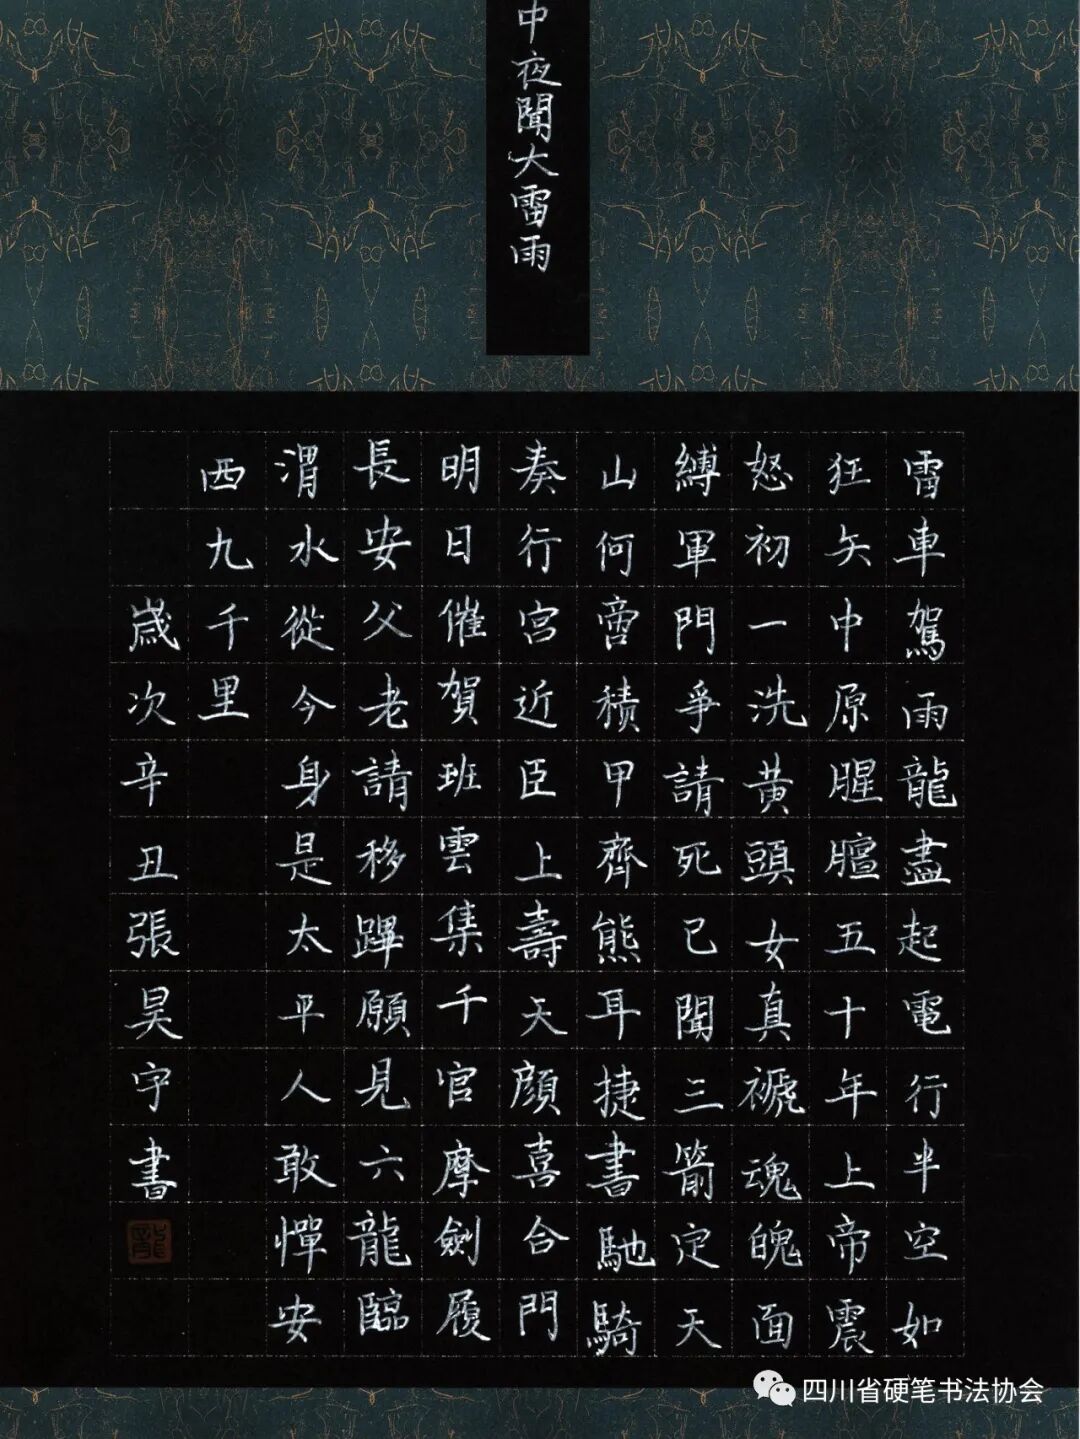 中夜聞大雷雨
雷車駕雨龍盡起電行半空如
狂矢中原腥膻五十年上帝震
怒初一洗黄頭女真褫魂魄面
縛軍門爭請死已聞三箭定天
山何啻積甲齊熊耳捷書馳騎
奏行宫近臣上壽天顔喜合門
明日催賀班雲集千官摩劍履
長安父老請移蹕願見六龍臨
渭水從今身是太平人敢憚安
西九千里
歲次辛丑張昊宇書
四川省硬笔书法协会